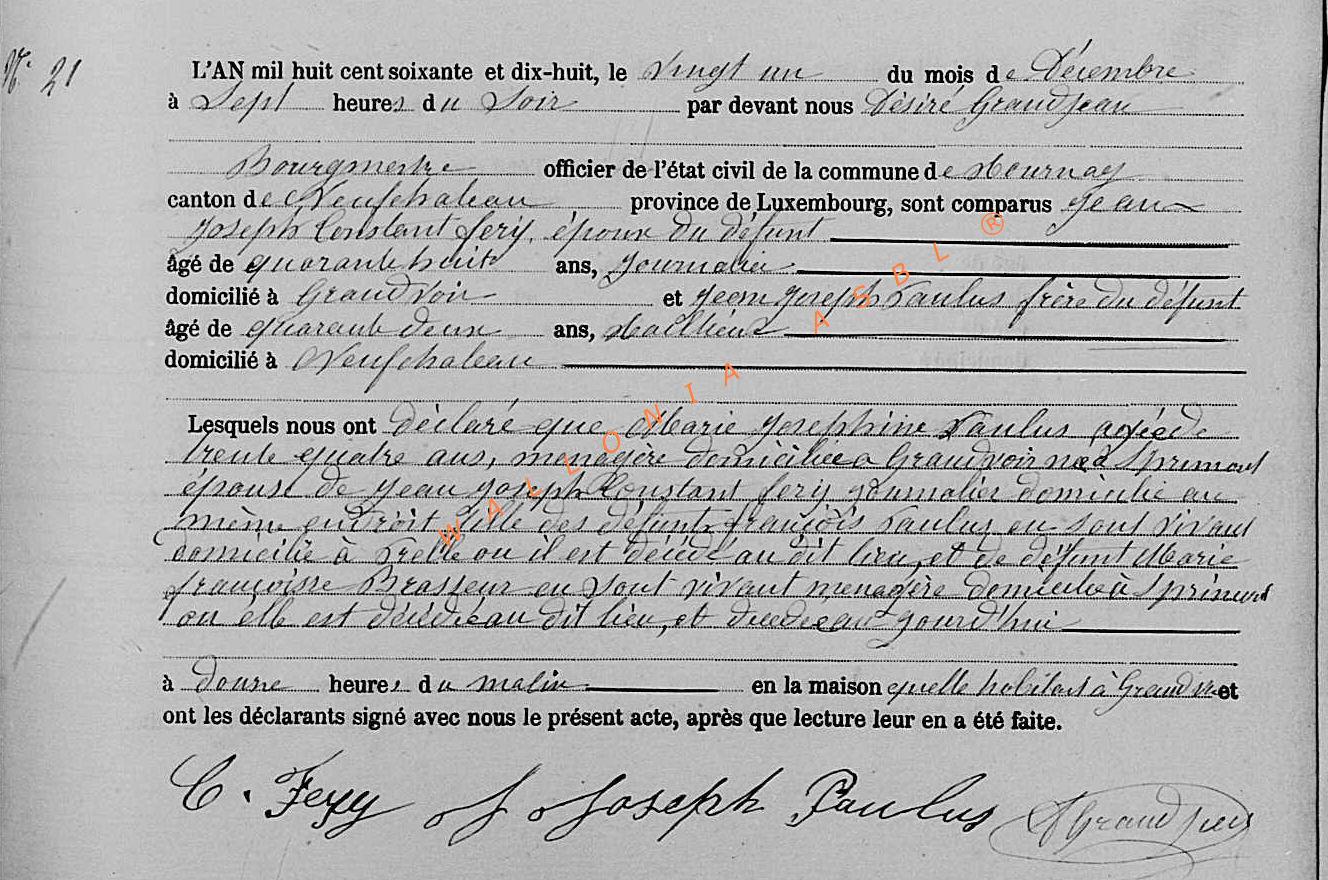 N° 21
L'AN mil huit cent soixante et dix-huit, le Vingt un du mois de Décembre
à Sept heures du Soir par devant nous Désiré Grandjean
Bourgmestre officier de l'état civil de la commune de
canton de Neufchateau province de Luxembourg, sont comparus Jean
Joseph Constant fery, époux du défunt
âgé de quarante huit ans, Journalier
domicilié à Grandvoir et Jean Joseph Paulus frère du défunt
âgé de quarante deux ans,
domicilié à Neufchateau
Lesquels nous ont déclaré que Marie Josephine Paulus agée de
trente quatre ans, menagère domiciliée a Grandvoir née à Sprimont
épouse de Jean Joseph Constant fery journalier domicilié au
même endroit fille des défunts françois Paulus en sont vivant
domicilié à où il est décédé au dit lieu, et de défunt Marie
françoisse Brasseur en sont vivant menagère domicilié à Sprimont
ou elle est décédée au dit lieu, et decedee aujourd'hui
à douze heures du matin en la maison quelle habitait à et
ont les déclarants signé avec nous le présent acte, après que lecture leur en a été faite.
C. Fery J Joseph Paulus DGrandjean
WALLONIA ASBL ®